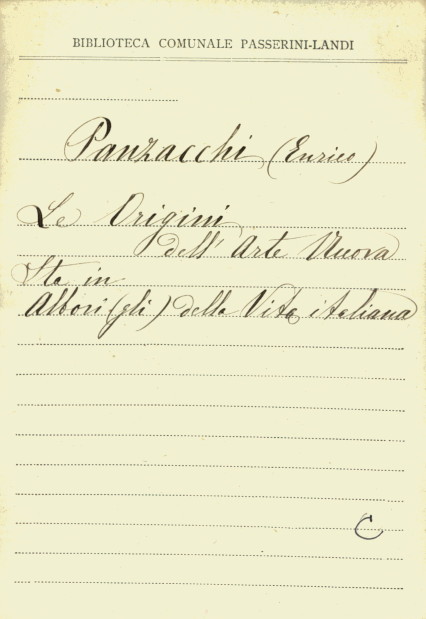 BIBLIOTECA COMUNALE PASSERINI-LANDI
Panzacchi (Enrico)
Le Origini
dell' Arte Nuova
Sta in
Albori (gli) della Vita italiana
C